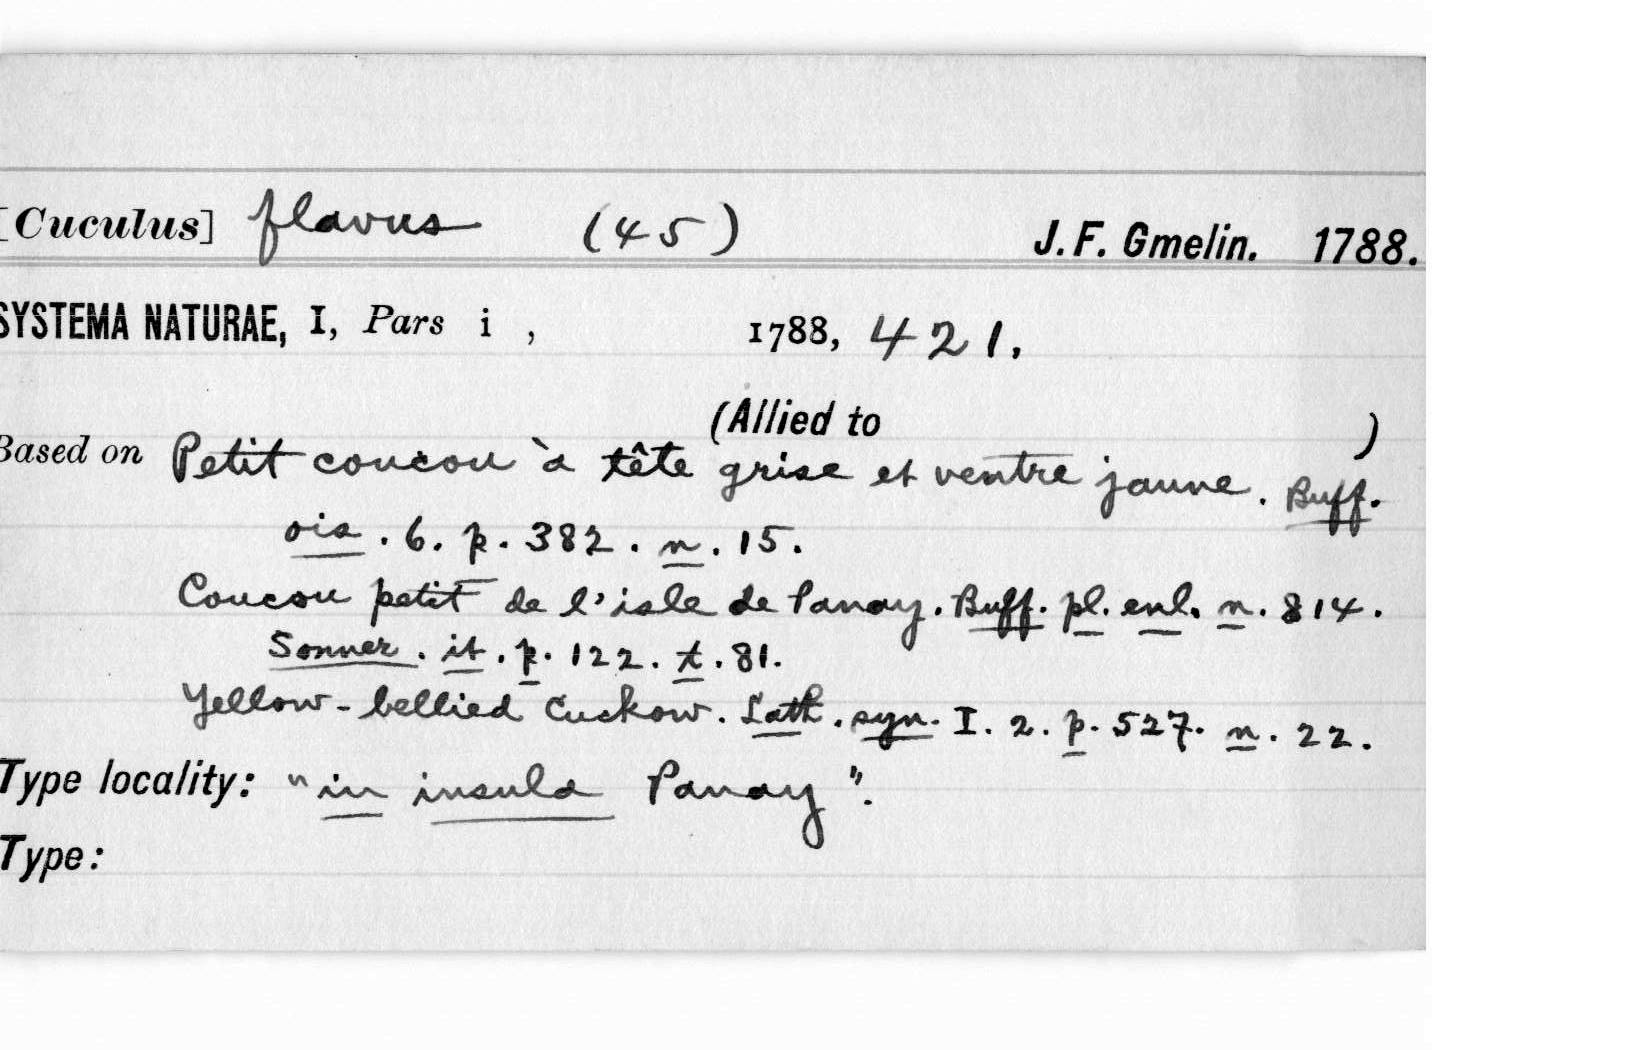 [Cuculus] flavus (45) J. F. Gmelin. 1788.
SYSTEMA NATURAE, I, Pars i , 1788, 421.
(Allied to )
Based on Petit coucou à tête grise et ventre jaune. Buff.
ois. 6. p. 382. n. 15.
Coucou petit de l'isle de Panay. Buff. pl. enl. n. 814.
Sonner. it. p. 122. t. 81.
Yellow-bellied Cuckow. Lath. syn. I. 2. p. 527. n. 22.
Type locality: "in insula Panay".
Type: